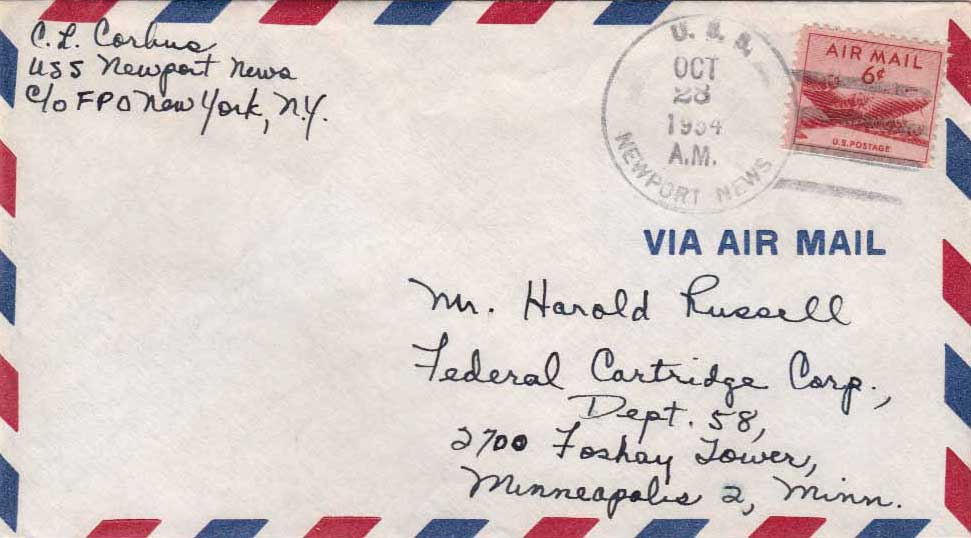 C. L. Corbus
USS Newport News
c/o FPO New York, N.Y.
U. S. S.
OCT
28
1954
A.M.
NEWPORT NEWS
AIR MAIL
6¢
U.S. POSTAGE
VIA AIR MAIL
Mr. Harold Russell
Federal Cartridge Corp.,
Dept. 58,
2700 Foshay Tower,
Minneapolis 2, Minn.